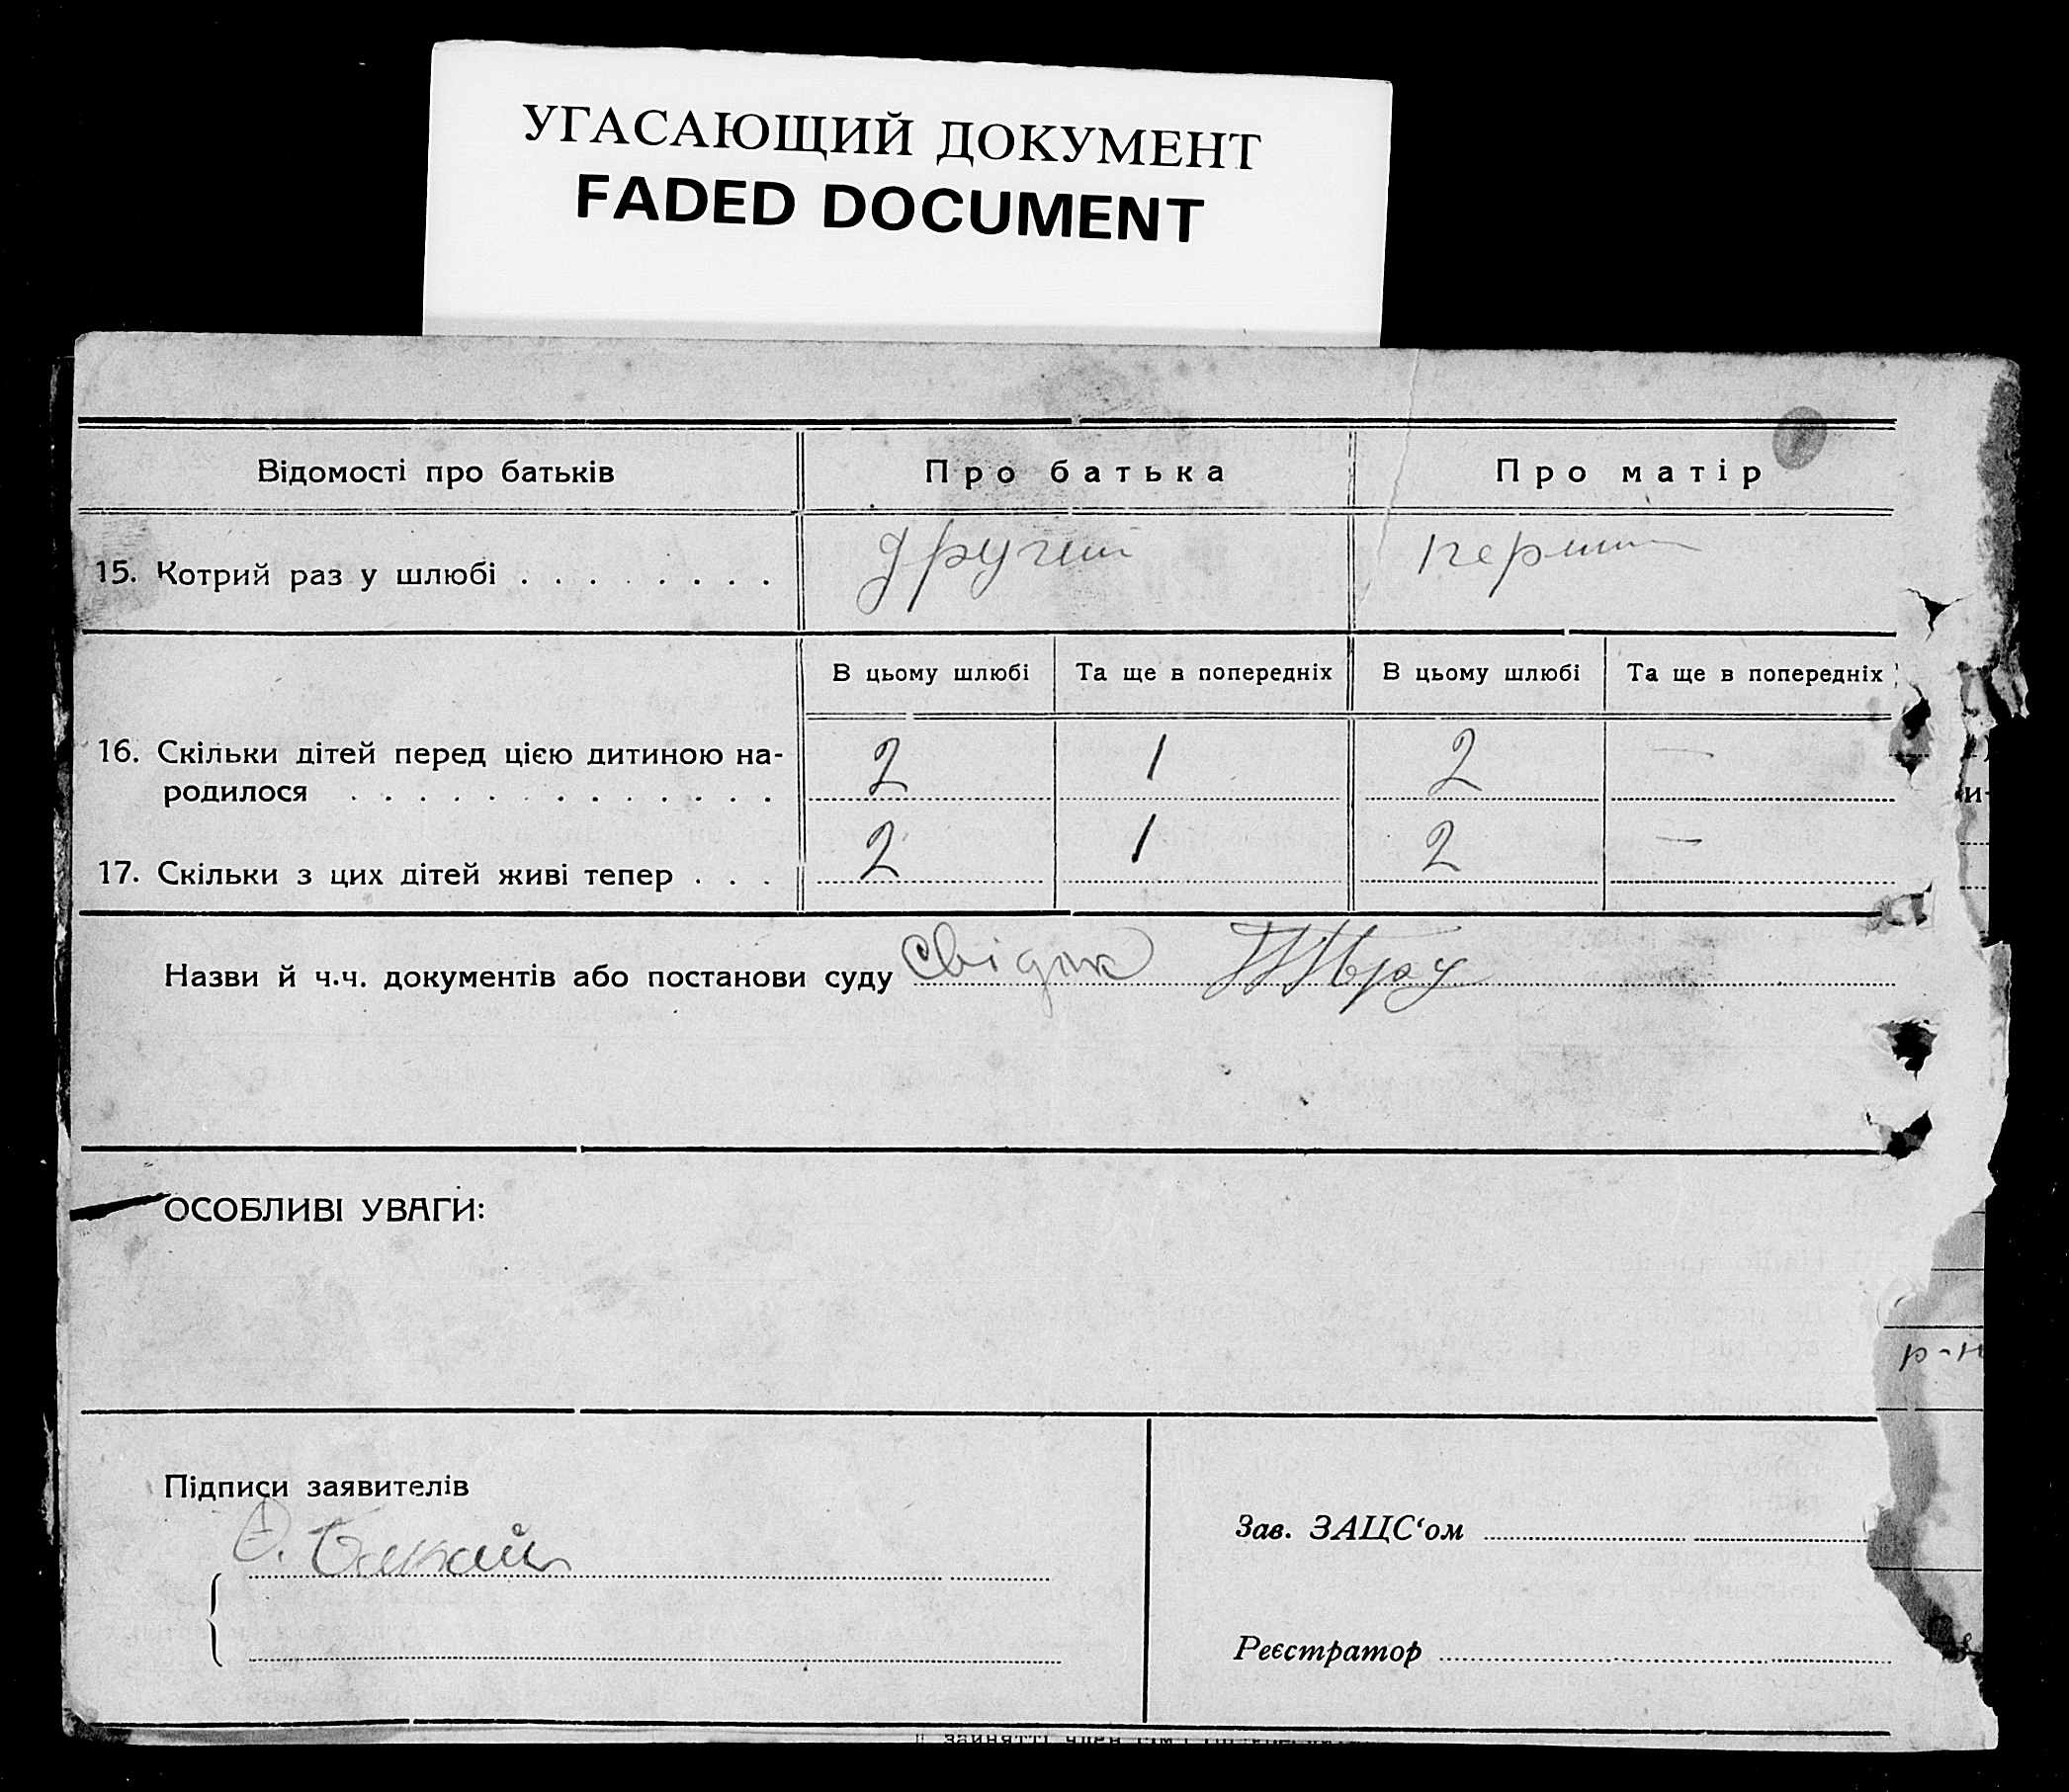 УГАСАЮЩИЙ ДОКУМЕНТ
FADED DOCUMENT
Відомості про батьків
Про батька
Про матір
15. Котрий раз у шлюбі . . . . . . . .
другий
перший
В цьому шлюбі
Та ще в попередніх
В цьому шлюбі
Та ще в попередніх
16. Скільки дітей перед цією дитиною на-
родилося . . . . . . . . . . . . .
2
1
2
—
17. Скільки з цих дітей живі тепер . . .
2
1
2
—
Назви й ч.ч. документів або постанови суду Свідок
ОСОБЛИВІ УВАГИ:
р-н
Підписи заявителів
Зав. ЗАЦС‘ом
Реєстратор